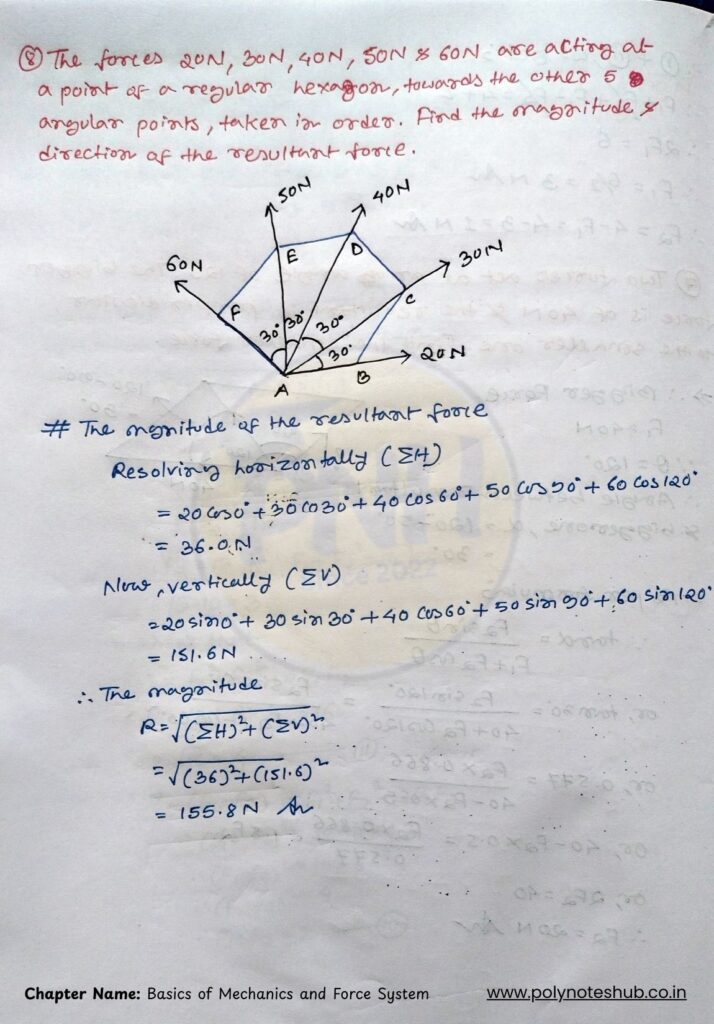 ⑧ The forces 20N, 30N, 40N, 50N & 60N are acting at
a point of a regular hexagon, towards the other 5
angular points, taken in order. Find the magnitude &
direction of the resultant force.
50N
40N
60N
30N
E
D
F
C
30° 30° 30°
30°
20N
A
B
# The mgnitude of the resultant force
Resolving horizontally (ΣH)
= 20 cos0° + 30 cos30° + 40 cos 60° + 50 cos 90° + 60 cos 120°
= 36.0 N
Now, vertically (ΣV)
= 20 sin0° + 30 sin 30° + 40 cos 60° + 50 sin 90° + 60 sin 120°
= 151.6 N
∴ The magnitude
R = √(ΣH)² + (ΣV)²
= √(36)² + (151.6)²
= 155.8 N An
PNH
2022
Chapter Name: Basics of Mechanics and Force System www.polynoteshub.co.in